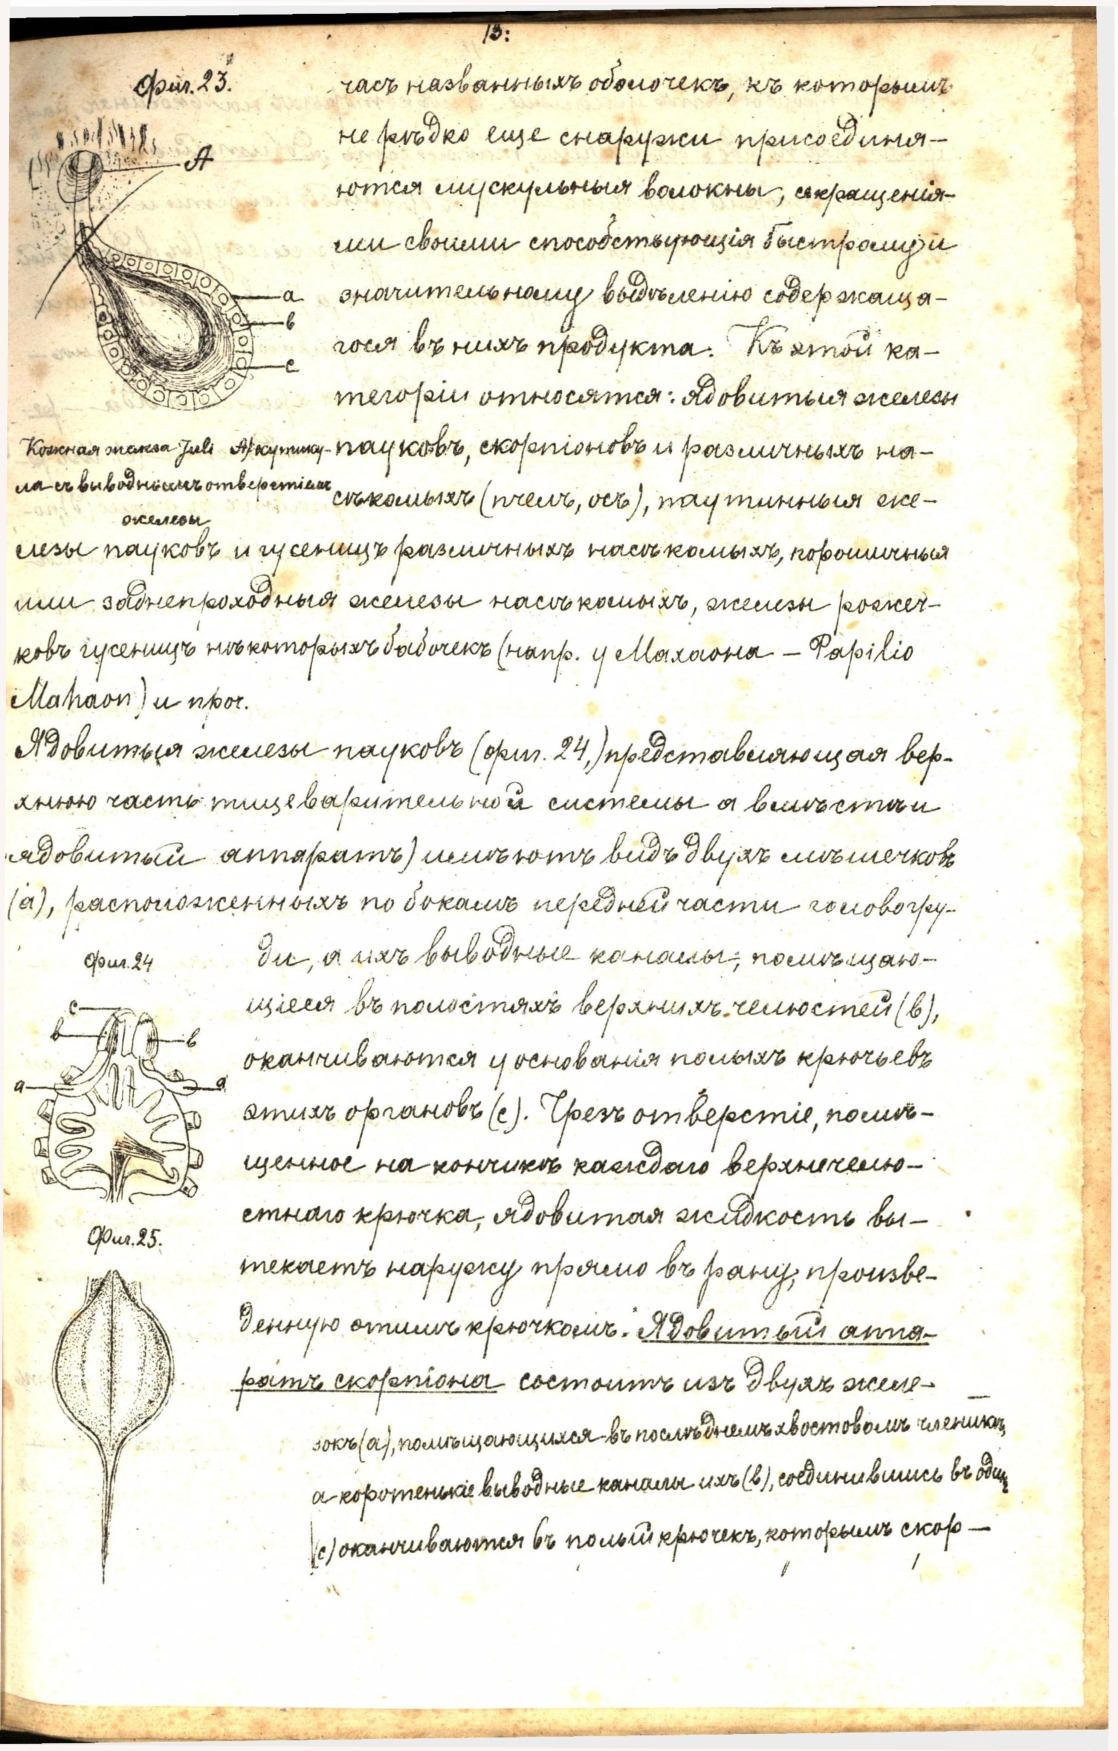 13:
Фиг. 23.
часъ названныхъ оболочекъ, къ которымъ
не рѣдко еще снаружи присоединя-
А
ются мускульныя волокны, сокращенія-
ми своими способствующія быстрому и
а
значительному выдѣленію содержаща-
в
гося въ нихъ продукта. Къ этой ка-
с
тегоріи относятся: ядовитыя железы
Кожная железа Juli А) кутику-
пауковъ, скорпіоновъ и различныхъ на-
ла съ выводнымъ отверстіемъ
сѣкомыхъ (пчелъ, осъ), паутинныя же-
железы
лезы пауковъ и гусеницъ различныхъ насѣкомыхъ, порошичныя
или заднепроходныя железы насѣкомыхъ, железы рожеч-
ковъ гусеницъ нѣкоторыхъ бабочекъ (напр. у Махаона – Papilio
Mahaon) и проч.
Ядовитыя железы пауковъ (фиг. 24,) представляющая вер-
хнюю часть пищеварительной системы а вмѣстѣ и
ядовитый аппаратъ) имѣютъ видъ двухъ мѣшечковъ
(а), расположенныхъ по бокамъ передней части головогру-
Фиг. 24
ди, а ихъ выводные каналы, помѣщаю-
с
щіеся въ полостяхъ верхнихъ челюстей (в),
в
в
оканчиваются у основанія полыхъ крючьевъ
а
а
этихъ органовъ (с). Чрезъ отверстіе, помѣ-
щенное на кончикѣ каждаго верхнечелю-
стнаго крючка, ядовитая жидкость вы-
Фиг. 25.
текаетъ наружу прямо въ рану, произве-
денную этимъ крючкомъ. Ядовитый аппа-
ратъ скорпіона состоитъ изъ двухъ желе-
зокъ (а), помѣщающихся въ послѣднемъ хвостовомъ членикѣ,
а коротенькіе выводные каналы ихъ (в), соединившись въ одинъ
(с) оканчиваются въ полый крючекъ, которымъ скор-